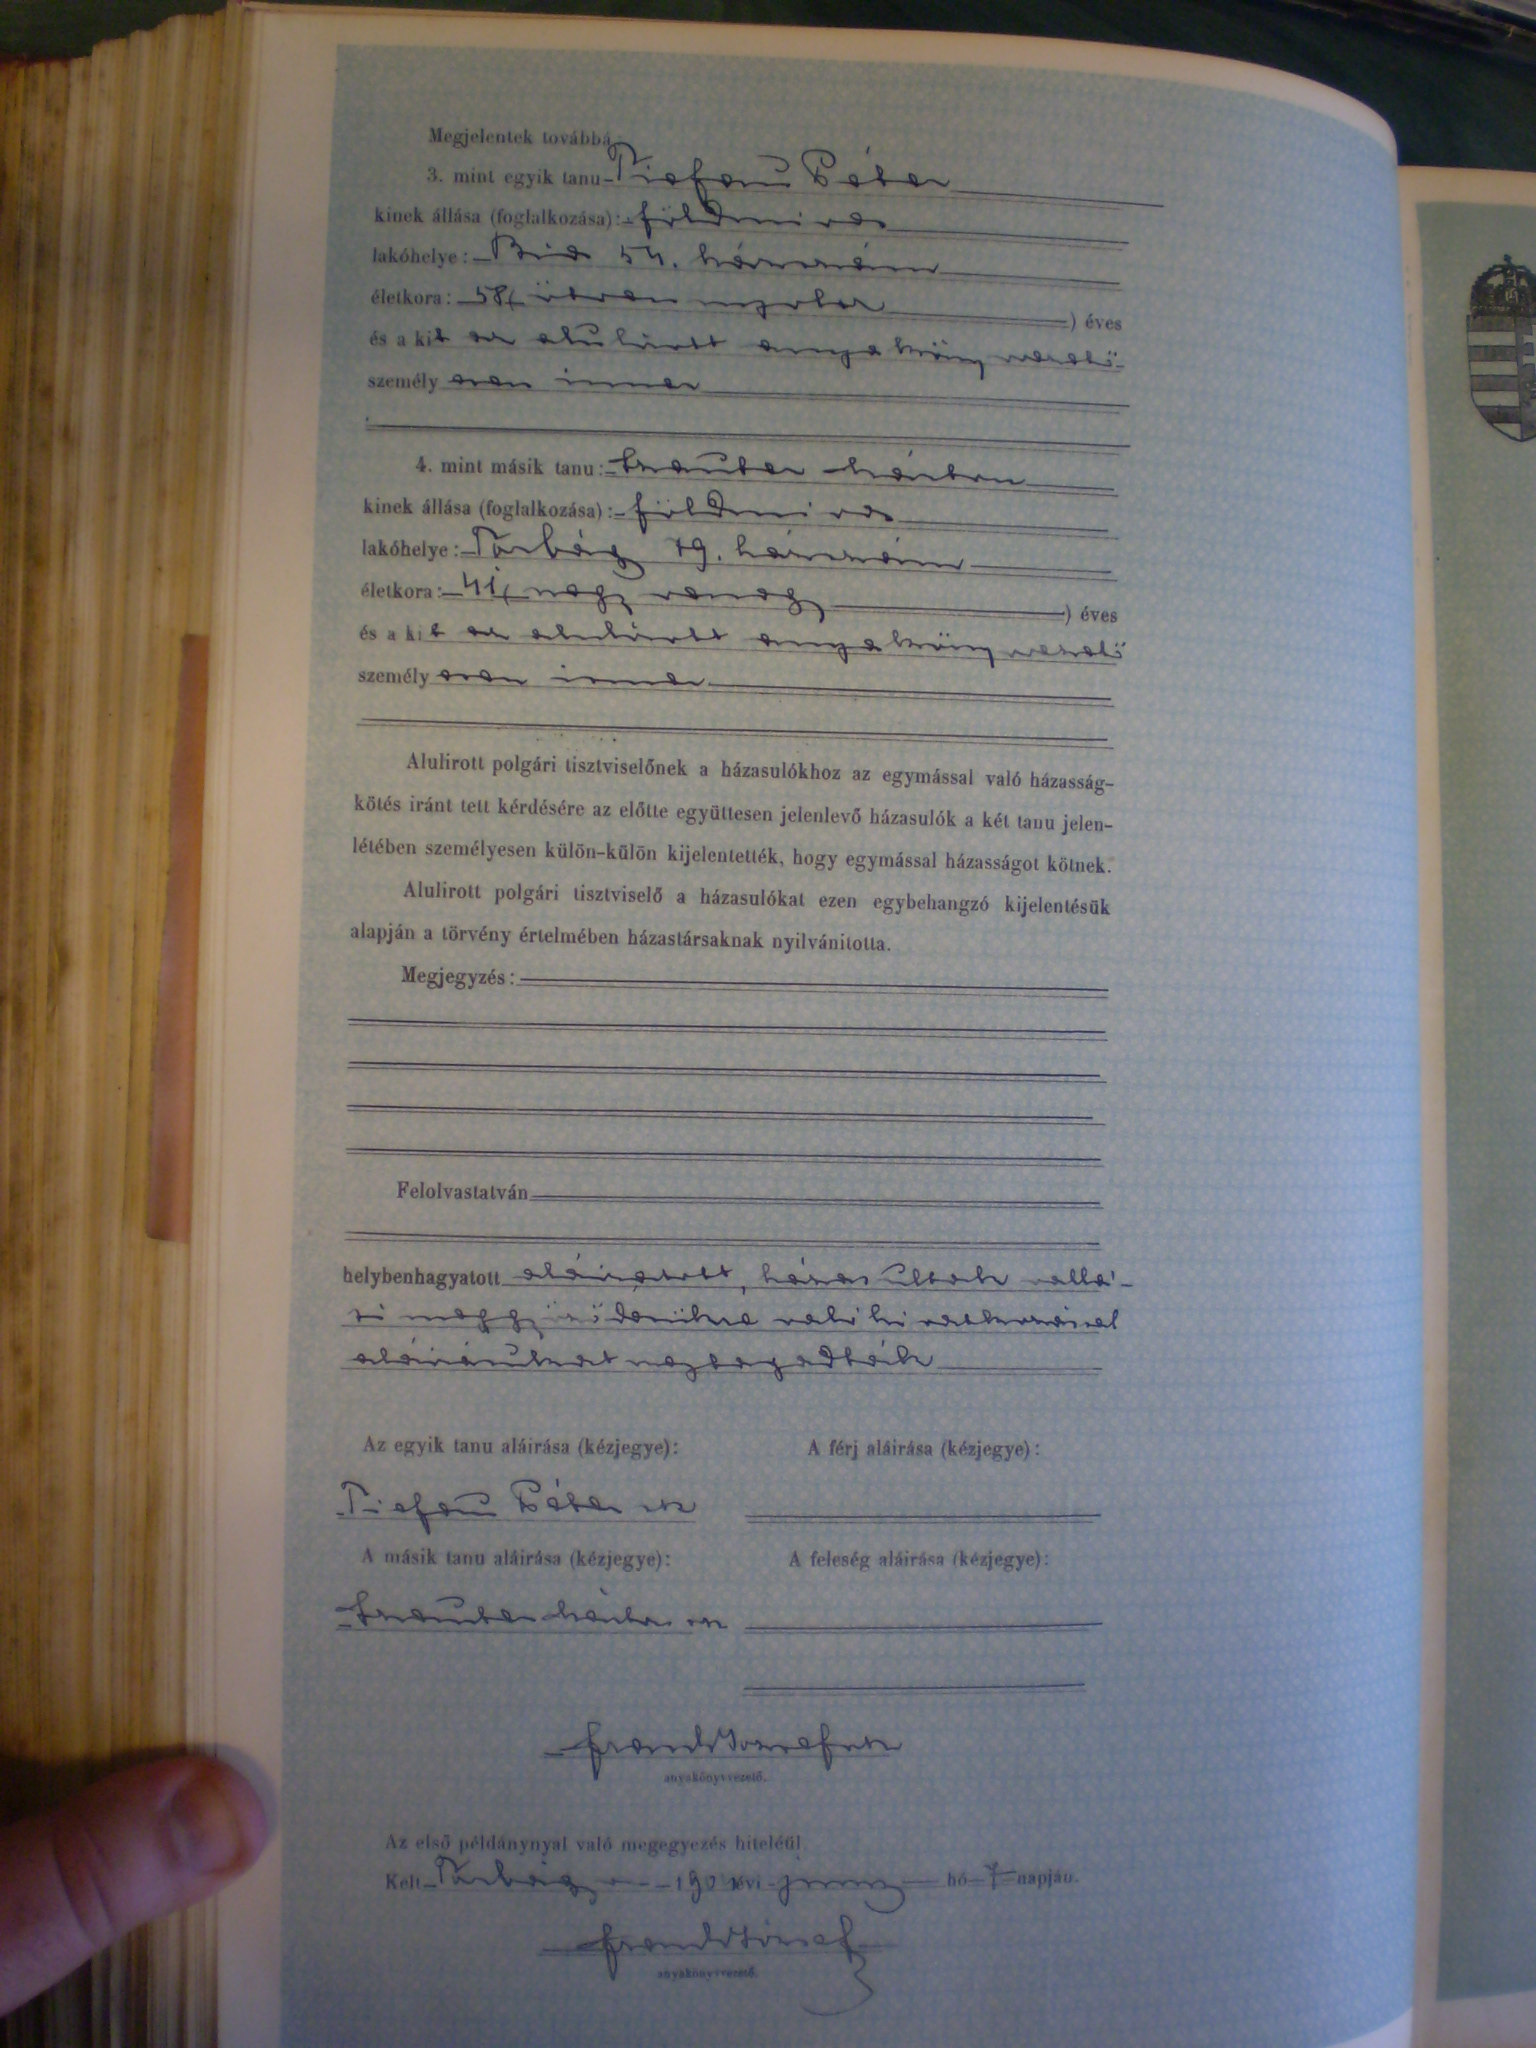 Megjelentek továbbá
3. mint egyik tanu Tiefau Péter
kinek állása (foglalkozása): földmives
lakóhelye: Bia 54. házszám
életkora: 58 (ötven nyolcz) éves
és a kit az alulirott anyakönyvvezető
személyesen ismer
4. mint másik tanu: Trauter Márton
kinek állása (foglalkozása): földmives
lakóhelye: Torbágy 79. házszám
életkora: 41 (negyvenegy) éves
és a kit az alulirott anyakönyvvezető
személyesen ismer
Alulirott polgári tisztviselőnek a házasulókhoz az egymással való házasság-
kötés iránt tett kérdésére az előtte együttesen jelenlevő házasulók a két tanu jelen-
létében személyesen külön-külön kijelentették, hogy egymással házasságot kötnek.
Alulirott polgári tisztviselő a házasulókat ezen egybehangzó kijelentésük
alapján a törvény értelmében házastársaknak nyilvánitotta.
Megjegyzés:
Felolvastatván
helybenhagyatott aláiratott, házasultak vallá-
si meggyőződésükre való hivatkozással
aláirásukat megtagadták
Az egyik tanu aláirása (kézjegye):
A férj aláirása (kézjegye):
Tiefau Péter sk
A másik tanu aláirása (kézjegye):
A feleség aláirása (kézjegye):
Trauter Márton sk
Frank József sk
anyakönyvvezető.
Az első példánynyal való megegyezés hiteléül
Kelt Torbágy 190 évi hó 7 napján.
Frank József
anyakönyvvezető.